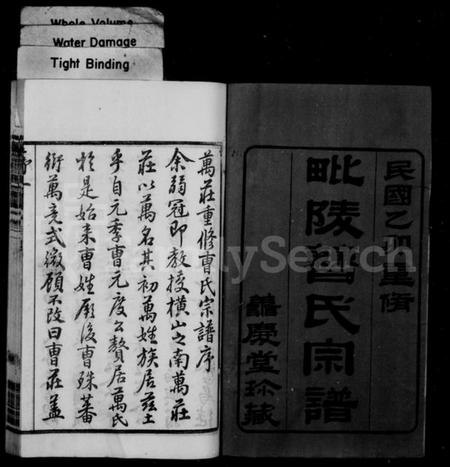 Whole Volume
Water Damage
Tight Binding
民國乙卯重脩
毗陵曹氏宗譜
衍慶堂珍藏
萬莊重修曹氏宗譜序
余弱冠即教授橫山之南萬莊
莊以萬名其初萬姓族居茲土
乎自元季曹元度公贅居萬氏
於是始来曹姓厥後曹殊蕃
衍萬竟式微顧不改曰曹莊蓋
FamilySearch